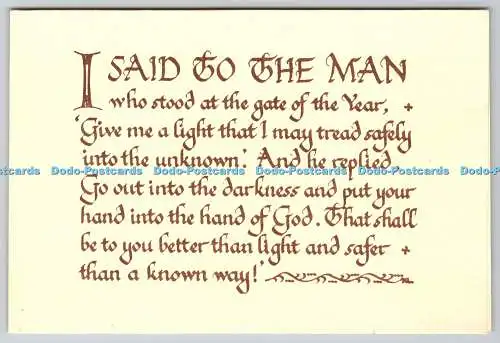 I SAID TO THE MAN
who stood at the gate of the Year,
'Give me a light that I may tread safely
into the unknown.' And he replied
Dodo-Postcards Dodo-Postcards Dodo-Postcards Dodo-Postcards Dodo-Postcards
Go out into the darkness and put your
hand into the hand of God. That shall
be to you better than light and safer
than a known way!'